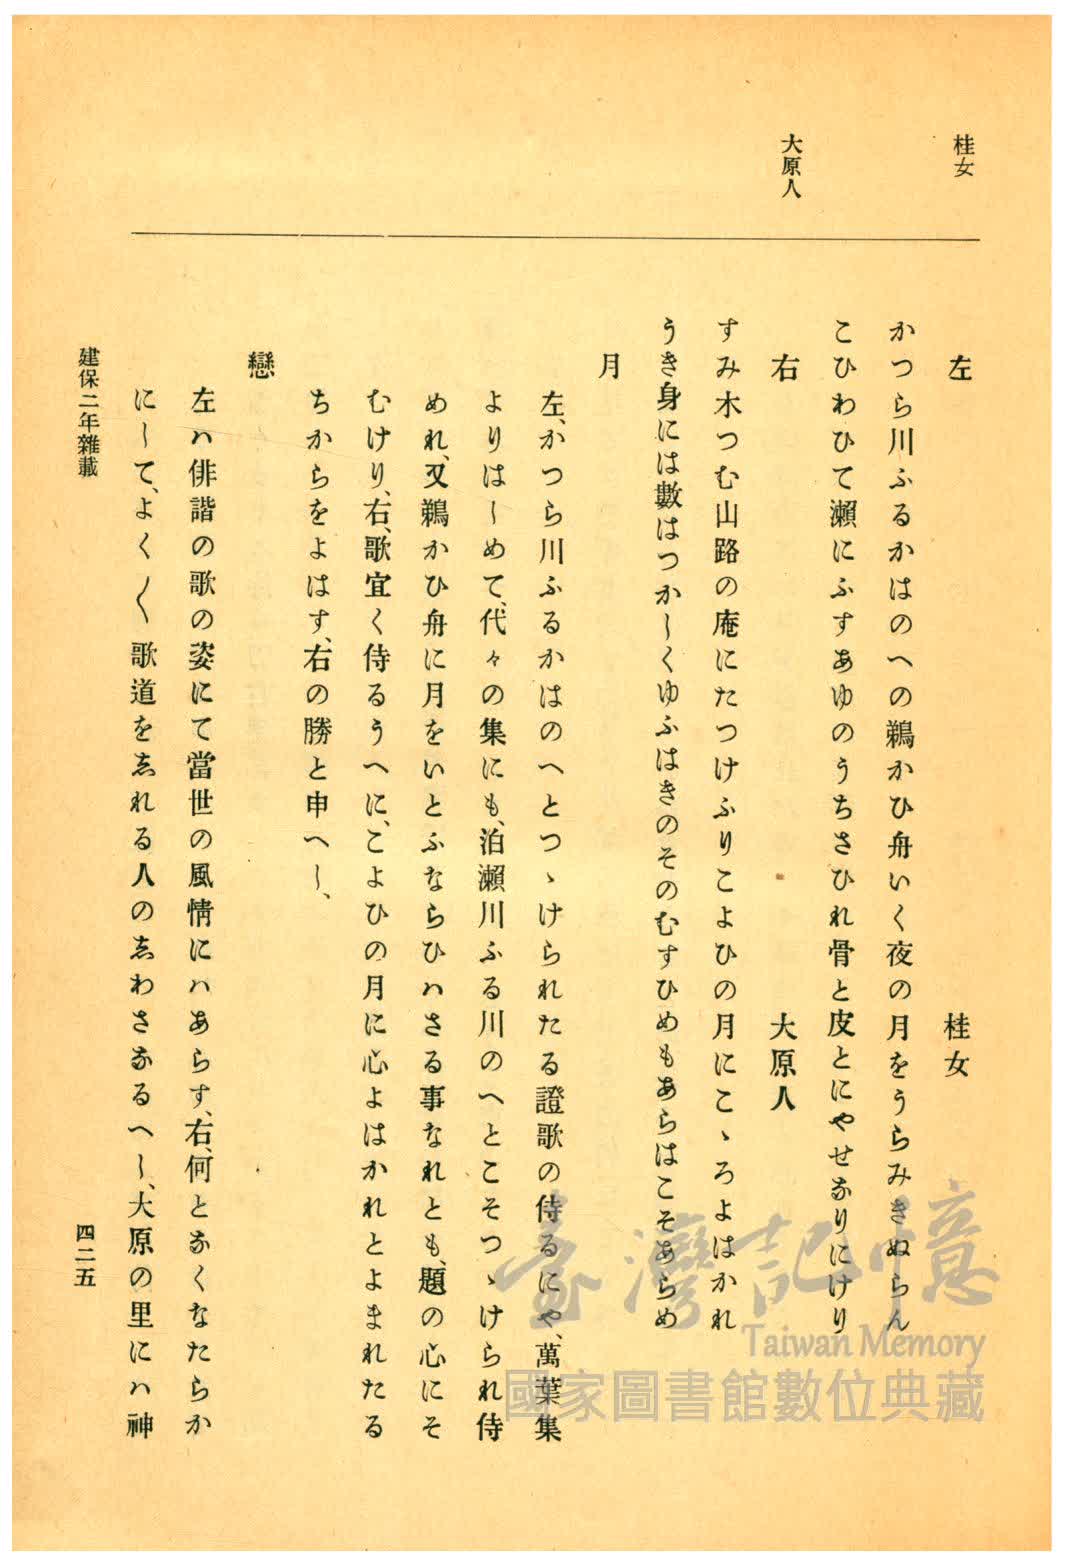 桂女
大原人
左　桂女
かつら川ふるかはのへの鵜かひ舟いく夜の月をうらみきぬらん
こひわひて瀬にふすあゆのうちさひれ骨と皮とにやせなりにけり
右　大原人
すみ木つむ山路の庵にたつけふりこよひの月にこゝろよはかれ
うき身には數はつかしくゆふはきのそのむすひめもあらはこそあらめ
月
左、かつら川ふるかはのへとつゝけられたる證歌の侍るにや、萬葉集
よりはしめて、代々の集にも、泊瀬川ふる川のへとこそつゝけられ侍
めれ、又鵜かひ舟に月をいとふならひハさる事なれとも、題の心にそ
むけり、右、歌宜く侍るうへに、こよひの月に心よはかれとよまれたる
ちからをよはす、右の勝と申へし、
戀
左ハ俳諧の歌の姿にて當世の風情にハあらす、右、何となくなたらか
にして、よく〳〵歌道をしれる人のしわさなるへし、大原の里にハ神
建保二年雜載
四二五
臺灣記憶
Taiwan Memory
國家圖書館數位典藏